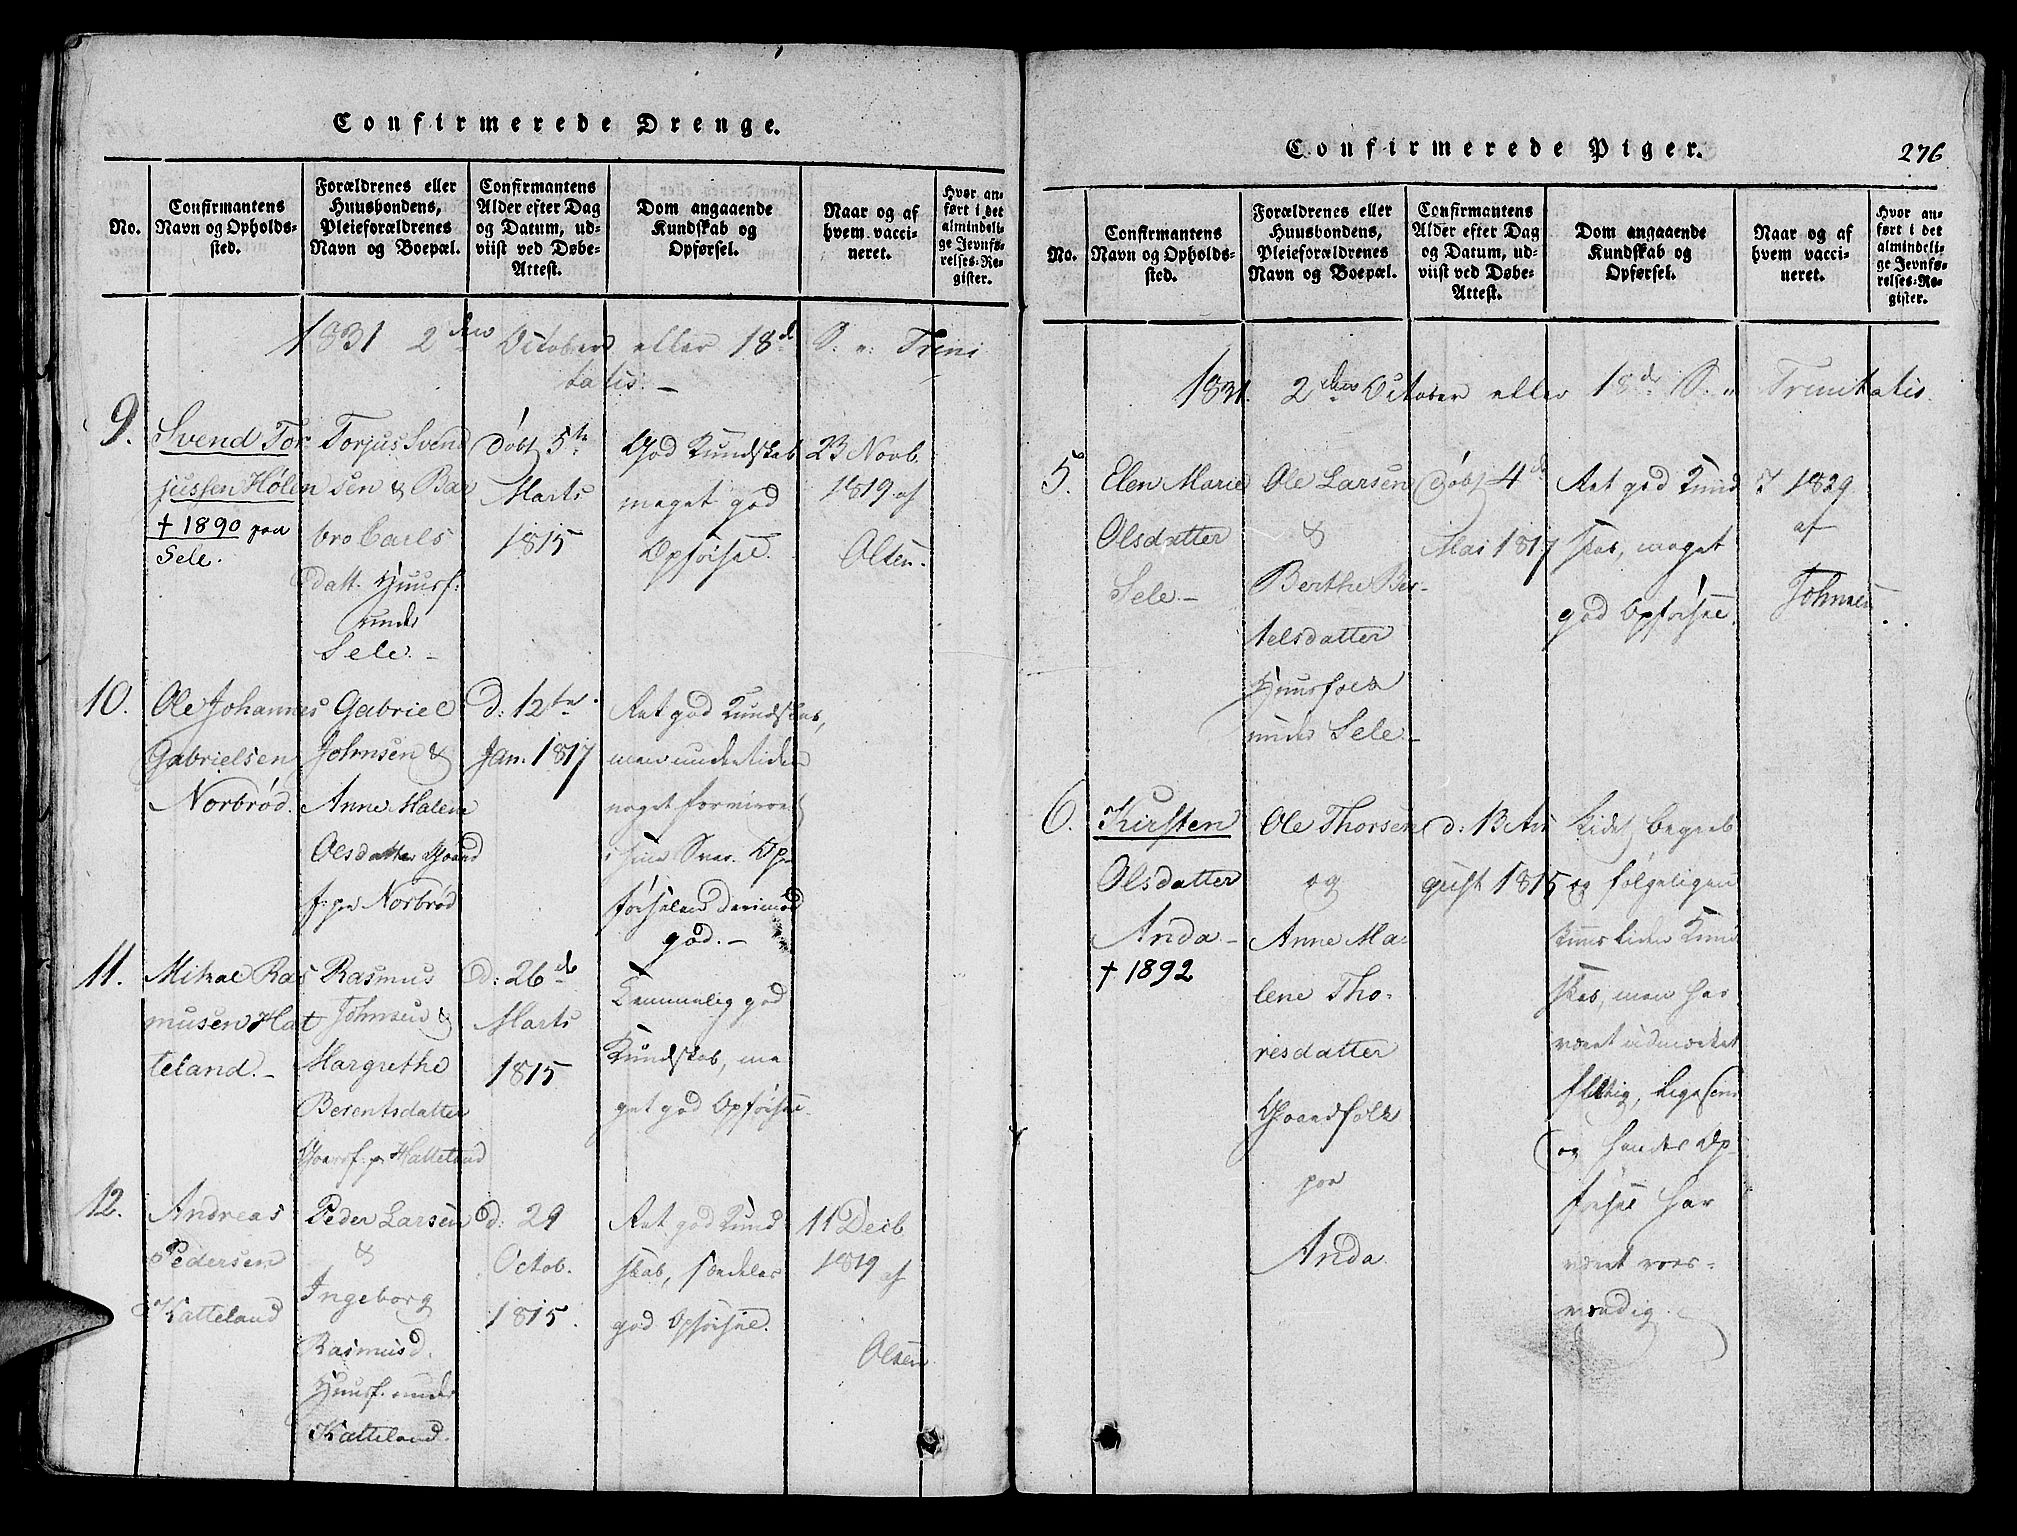 Confirmerede Drenge.
No.
Confirmantens
Navn og Opholds-
sted.
Forældrenes eller
Huusbondens,
Pleieforældrenes
Navn og Boepæl.
Confirmantens
Alder efter Dag
og Datum, ud-
viist ved Døbe-
Attest.
Dom angaaende
Kundskab og
Opførsel.
Naar og af
hvem vacci-
neret.
Hvor an-
ført i det
almindeli-
ge Jevnfø-
relses-Re-
gister.
1831 2den October eller 18de S. e: Trini
tatis. –
9.
Svend Tor
jussen Hølen
† 1890 paa
Sele.
Torjus Svend
sen & Bar
bro Carls
datt. Huusf.
under
Sele. –
Døbt 5te
Marts
1815
God Kundskab
meget god
Opførsel.
23 Novb.
1819 af
Olsen.
10.
Ole Johannes
Gabrielsen
Norbrød.
Gabriel
Johnsen &
Anne Malene
Olsdatter Gaard
f. paa Norbrød
D: 12te
Jan. 1817
Ret god Kundskab,
men undertiden
noget forvirret
i sine Svar. Op-
førselen derimod
god. –
11.
Mikal Ras
musen Hat
teland. –
Rasmus
Johnsen &
Margrethe
Berentsdatter
Gaardf. p. Hatteland
D: 26de
Marts
1815
Temmelig god
Kundskab, me
get god Opførsel.
12.
Andreas
Pedersen
Hatteland
Peder Larsen
&
Ingeborg
Rasmusd.
Huusf. under
Hatteland.
d: 29
Octob.
1815.
Ret god Kund
skab, særdeles
god Opførsel.
11 Decb
1819 af
Olsen
Confirmerede Piger.
276
No.
Confirmantens
Navn og Opholds-
sted.
Forældrenes eller
Huusbondens,
Pleieforældrenes
Navn og Boepæl.
Confirmantens
Alder efter Dag
og Datum, ud-
viist ved Døbe-
Attest.
Dom angaaende
Kundskab og
Opførsel.
Naar og af
hvem vacci-
neret.
Hvor an-
ført i det
almindeli-
ge Jevnfø-
relses-Re-
gister.
1831. 2den October eller 18de S. e: Trinitatis.
5.
Elen Marie
Olsdatter
Sele. –
Ole Larsen
&
Berthe Ber-
telsdatter
Huusfolk
under Sele. –
Døbt 4de
Mai 1817
Ret god Kund
skab, meget
god Opførsel.
1829
af
Johnsen
6.
Kirsten
Olsdatter
Anda –
† 1892
Ole Thorsen
og
Anne Ma-
lene Tho-
resdatter
Gaardfolk
paa
Anda.
d: 13 Au
gust 1815
Lidet begreb
og følgeligen
kuns liden Kund
skab, men har
været udmærket
flittig, ligesom
og hendes Op-
førsel har
været roes-
værdig.